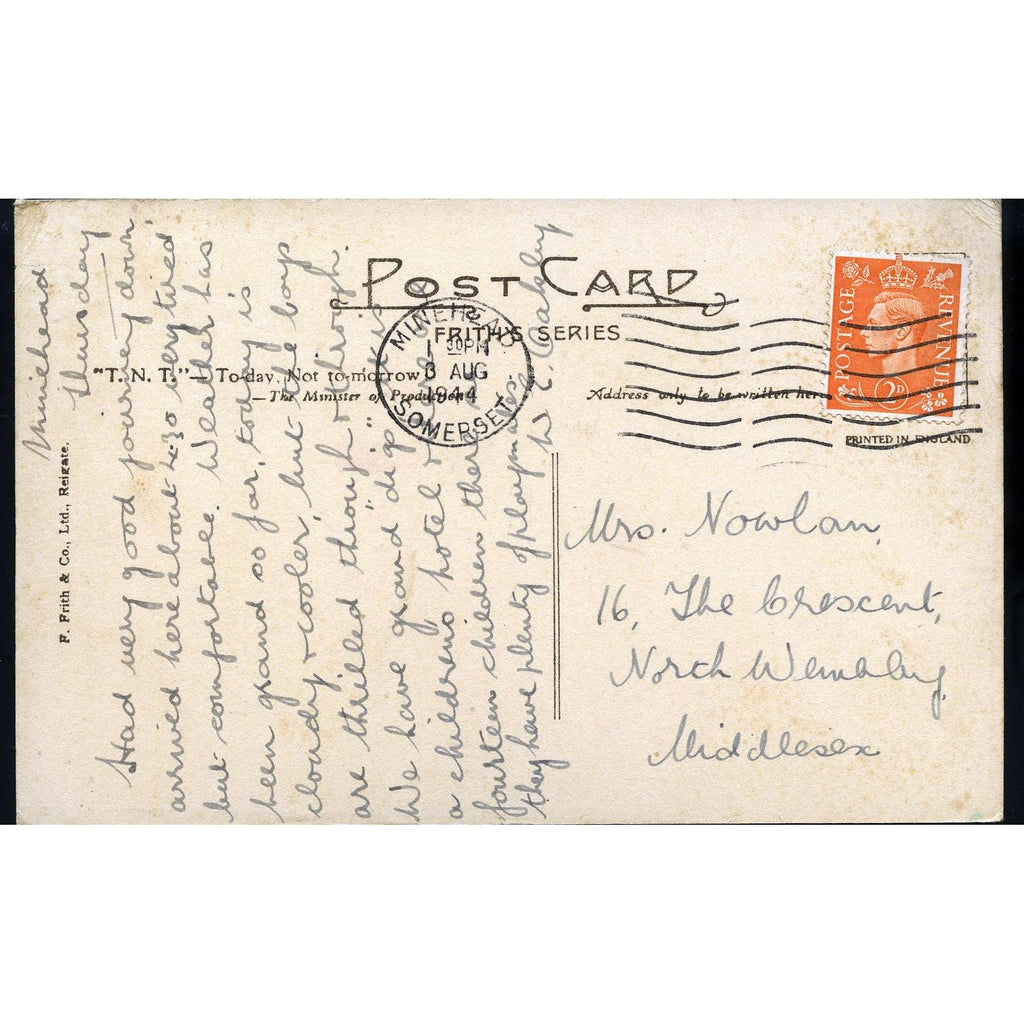 POST CARD
FRITH'S SERIES
"T. N. T."—To-day, Not to-morrow
—The Minister of Production
Address only to be written here
PRINTED IN ENGLAND
F. Frith & Co., Ltd., Reigate.
MINEHEAD
1 30PM
8 AUG
1944
SOMERSET
POSTAGE
REVENUE
2D
Minehead
Thursday
Had very good journey down,
arrived here about 4.30 very tired
but comfortable. Weather has
been grand so far, today is
cloudy & cooler, but the boys
are thrilled through & through.
We have grand "digs"
a childrens hotel &
fourteen children there
they have plenty of playmates. W. E. Oakley
Mrs. Nowlan,
16, The Crescent,
North Wembley,
Middlesex